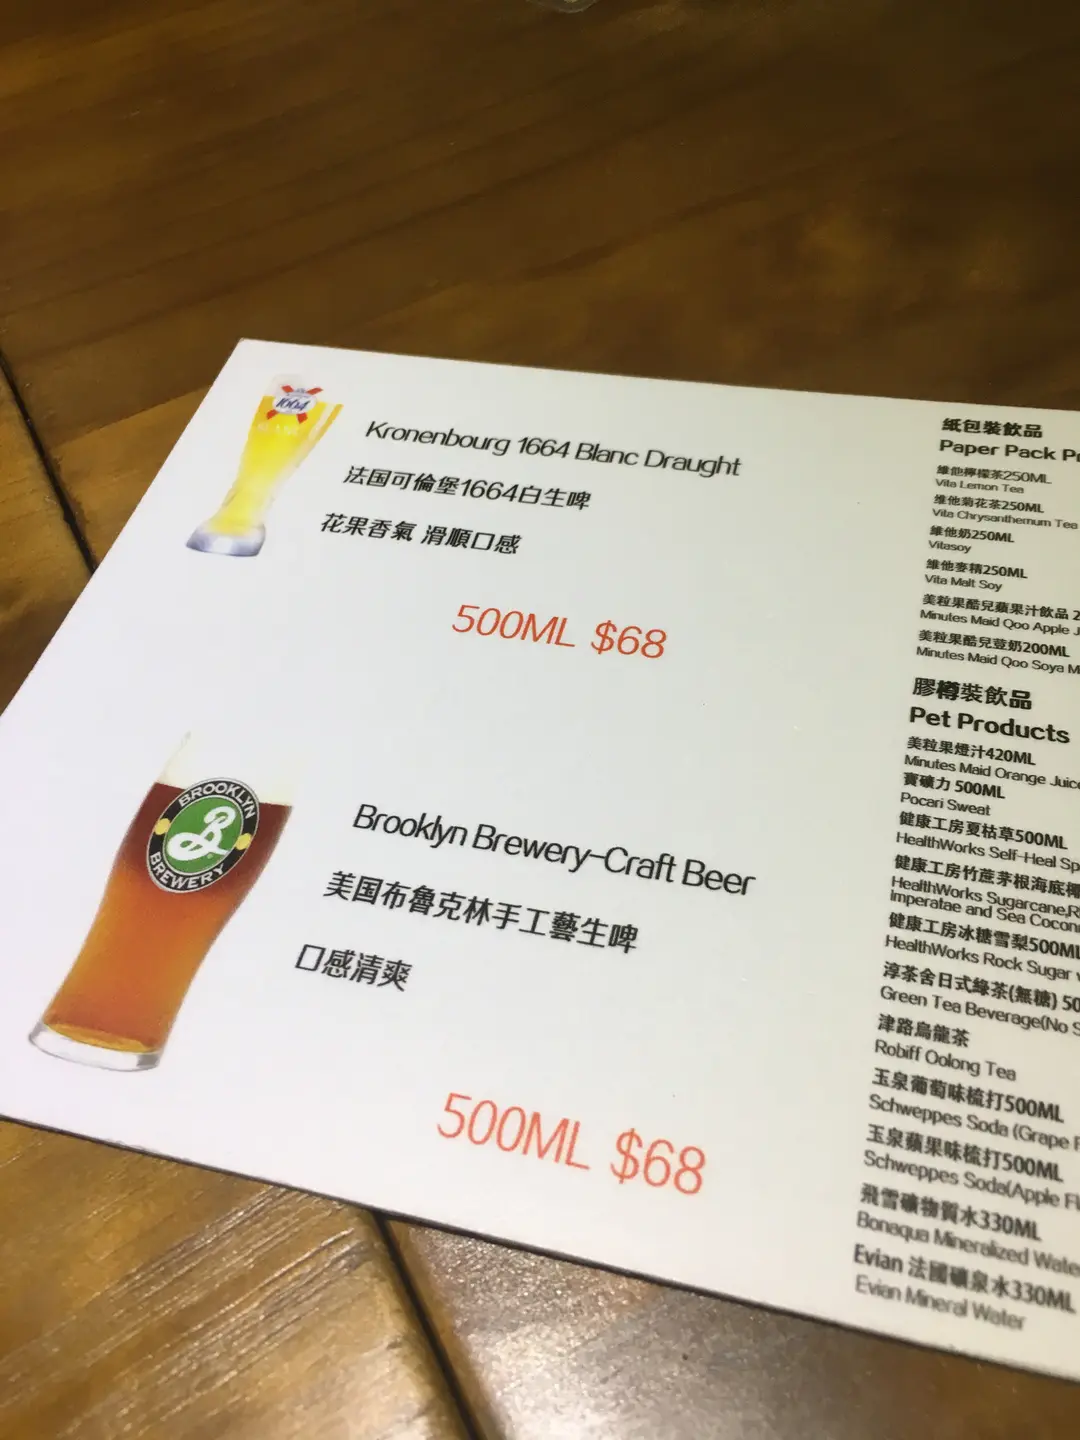 1664
BLANC
Kronenbourg 1664 Blanc Draught
法国可倫堡1664白生啤
花果香氣 滑順口感
500ML $68
BROOKLYN
B
BREWERY
Brooklyn Brewery-Craft Beer
美国布魯克林手工藝生啤
口感清爽
500ML $68
紙包裝飲品
Paper Pack
維他檸檬茶250ML
Vita Lemon Tea
維他菊花茶250ML
Vita Chrysanthemum Tea
維他奶250ML
Vitasoy
維他麥精250ML
Vita Malt Soy
美粒果酷兒蘋果汁飲品
Minutes Maid Qoo Apple
美粒果酷兒荳奶200ML
Minutes Maid Qoo Soya
膠樽裝飲品
Pet Products
美粒果橙汁420ML
Minutes Maid Orange Juice
寶礦力 500ML
Pocari Sweat
健康工房夏枯草500ML
HealthWorks Self-Heal
健康工房竹蔗茅根海底椰
HealthWorks Sugarcane,
Imperatae and Sea
健康工房冰糖雪梨500ML
HealthWorks Rock Sugar
淳茶舍日式綠茶(無糖)
Green Tea Beverage(No
津路烏龍茶
Robiff Oolong Tea
玉泉葡萄味梳打500ML
Schweppes Soda (Grape
玉泉蘋果味梳打500ML
Schweppes Soda(Apple
飛雪礦物質水330ML
Bonaqua Mineralized Water
Evian 法國礦泉水330ML
Evian Mineral Water